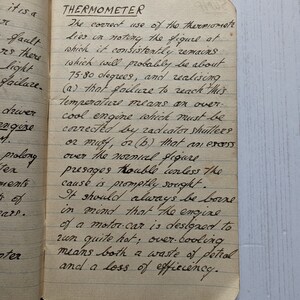 THERMOMETER
The correct use of the thermometer
lies in noting the figure at
which it consistently remains
which will probably be about
75-80 degrees, and realising
(a) that failure to reach this
temperature means an over-
cool engine which must be
corrected by radiator shutters
or muff, or (b) that an excess
over the normal figure
presages trouble unless the
cause is promptly sought.
It should always be borne
in mind that the engine
of a motor-car is designed to
run quite hot; over-cooling
means both a waste of petrol
and a loss of efficiency.
it is a
or
fault
light
failure.
driver
engine
of.
prolong
ments
of